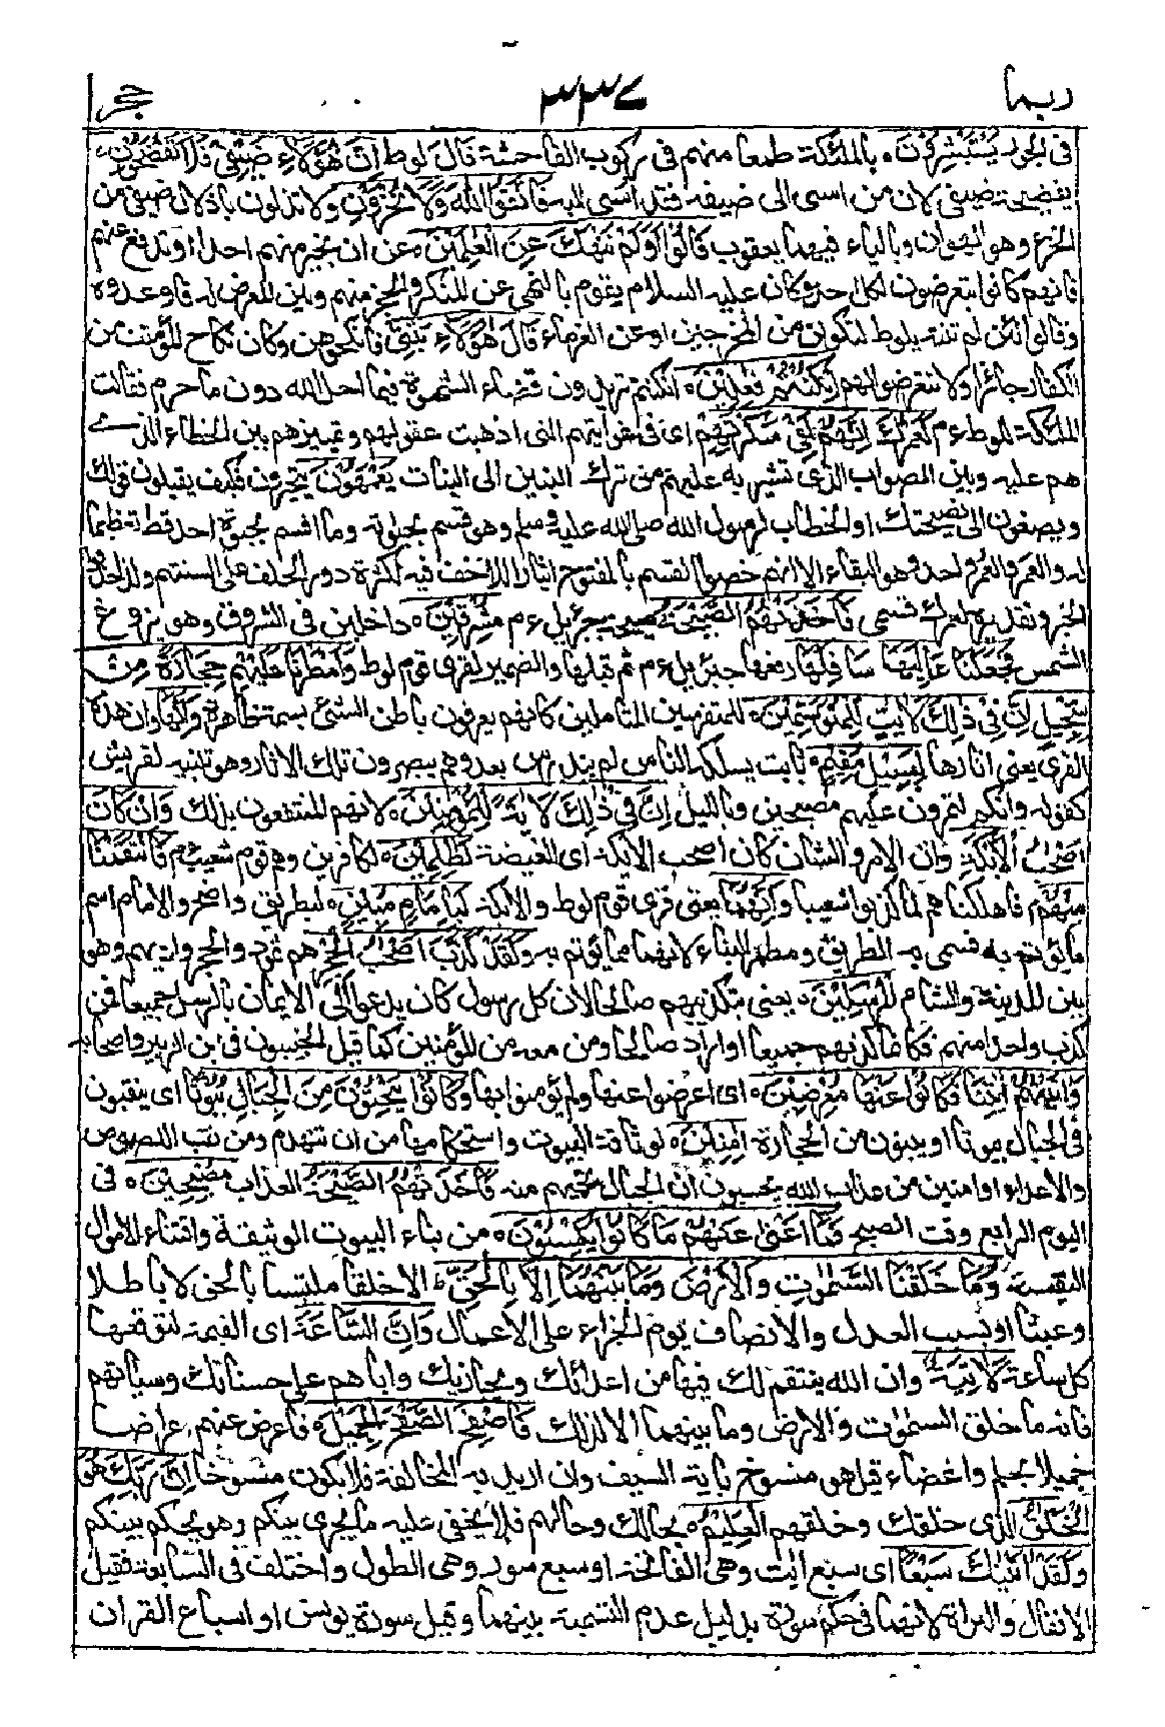 ربما ٣٣٤ حجر
فى الحجر يَسْتَبْشِرُوْنَ ه بالملئكة طمعا منهم فى ركوب الفاحشة قَالَ لوط اِنَّ هٰٓؤُلَآءِ ضَيْفِىْ فَلَا تَفْضَحُوْنِ ه
بفضيحة ضيفى لان من اسئ الى ضيفه فقد اسئ اليه فَاتَّقُوا اللّٰهَ وَلَا تُخْزُوْنِ ولا تذلون باذلال ضيفى من
الخزى وهو الهوان وبالياء فيهما يعقوب قَالُوْٓا اَوَلَمْ نَنْهَكَ عَنِ الْعٰلَمِيْنَ ه عن ان تجير منهم احدا او تدفع عنهم
فانهم كانوا يتعرضون لكل احد وكان عليه السلام يقوم بالنهى عن المنكر والحجز منهم وبين المعرض له فاوعدوه
وقالوا لئن لم تنته يلوط لتكونن من المخرجين او عن الغرباء قَالَ هٰٓؤُلَآءِ بَنٰتِىْٓ فانكحوهن وكان نكاح المؤمنت من
الكفار جائزا ولا تتعرضوا لهم اِنْ كُنْتُمْ فٰعِلِيْنَ ه ان كنتم تريدون قضاء الشهوة فيما احل الله دون ما حرم فقالت
الملئكة للوط ءم لَعَمْرُكَ اِنَّهُمْ لَفِىْ سَكْرَتِهِمْ اى فى غوايتهم التى اذهبت عقولهم وتمييزهم بين الخطاء الذى
هم عليه وبين الصواب الذى تشير به عليهم من ترك البنين الى البنات يَعْمَهُوْنَ يتحيرون فكيف يقبلون قولك
ويصغون الى نصيحتك او الخطاب لرسول الله صلى الله عليه وسلم وهو قسم بحيوته وما اقسم بحيوة احد قط تعظيما
له والعمر والعمر واحد وهو البقاء الا انهم خصوا القسم بالمفتوح ايثارا للاخف فيه لكثرة دور الحلف على السنتهم ولذا حذفوا
الخبر وتقديره لعمرك قسمى فَاَخَذَتْهُمُ الصَّيْحَةُ صيحة جبرئيل ءم مُشْرِقِيْنَ ه داخلين فى الشروق وهو بزوغ
الشمس فَجَعَلْنَا عَالِيَهَا سَافِلَهَا رفعها جبرئيل ءم ثم قبلها والضمير لقرى قوم لوط وَاَمْطَرْنَا عَلَيْهِمْ حِجَارَةً مِنْ
سِجِّيْلٍ اِنَّ فِىْ ذٰلِكَ لَاٰيٰتٍ لِّلْمُتَوَسِّمِيْنَ ه للمتفرسين المتاملين كانهم يعرفون باطن الشئ بسمة ظاهرة وَاِنَّهَا وان هذه
القرى يعنى اثارها لَبِسَبِيْلٍ مُّقِيْمٍ ه ثابت يسلكه الناس لم يندرس بعد وهم يبصرون تلك الاثار وهو تنبيه لقريش
كقوله وانكم لتمرون عليهم مصبحين وبالليل اِنَّ فِىْ ذٰلِكَ لَاٰيَةً لِّلْمُؤْمِنِيْنَ ه لانهم المنتفعون بذلك وَاِنْ كَانَ
اَصْحٰبُ الْاَيْكَةِ وان الامر والشان كان اصحب الايكة اى الغيضة لَظٰلِمِيْنَ ه لكافرين وهم قوم شعيب ءم فَانْتَقَمْنَا
مِنْهُمْ فاهلكناهم لما كذبوا شعيبا وَاِنَّهُمَا يعنى قرى قوم لوط والايكة لَبِاِمَامٍ مُّبِيْنٍ ه لبطريق واضح والامام اسم
ما يؤتم به فسمى به الطريق ومطمر البناء لانهما مما يؤتم به وَلَقَدْ كَذَّبَ اَصْحٰبُ الْحِجْرِ هم ثمود والحجر واديهم وهو
بين المدينة والشام الْمُرْسَلِيْنَ ه يعنى بتكذيبهم صالحا لان كل رسول كان يدعو الى الايمان بالرسل جميعا فمن
كذب واحدا منهم فكانما كذبهم جميعا او اراد صالحا ومن معه من المؤمنين كما قيل الخبيبون فى ابن الزبير واصحابه
وَاٰتَيْنٰهُمْ اٰيٰتِنَا فَكَانُوْا عَنْهَا مُعْرِضِيْنَ ه اى اعرضوا عنها ولم يؤمنوا بها وَكَانُوْا يَنْحِتُوْنَ مِنَ الْجِبَالِ بُيُوْتًا اى ينقبون
فى الجبال بيوتا او يبنون من الحجارة اٰمِنِيْنَ ه لوثاقة البيوت واستحكامها من ان تتهدم ومن نقب اللصوص
والاعداء او امنين من عذاب الله يحسبون ان الجبال تحميهم منه فَاَخَذَتْهُمُ الصَّيْحَةُ العذاب مُصْبِحِيْنَ ه فى
اليوم الرابع وقت الصبح فَمَآ اَغْنٰى عَنْهُمْ مَّا كَانُوْا يَكْسِبُوْنَ ه من بناء البيوت الوثيقة واقتناء الاموال
النفيسة وَمَا خَلَقْنَا السَّمٰوٰتِ وَالْاَرْضَ وَمَا بَيْنَهُمَآ اِلَّا بِالْحَقِّ ط الا خلقا ملتبسا بالحق لا باطلا
وعبثا او بسبب العدل والانصاف يوم الجزاء على الاعمال وَاِنَّ السَّاعَةَ اى القيمة لتوقعها
كل ساعة لَاٰتِيَةٌ وان الله ينتقم لك فيها من اعدائك ويجازيك واياهم على حسناتك وسياتهم
فانه ما خلق السموت والارض وما بينهما الا لذلك فَاصْفَحِ الصَّفْحَ الْجَمِيْلَ ه فاعرض عنهم اعراضا
جميلا بحلم واغضاء قيل هو منسوخ باية السيف وان اريد به المخالقة فلا يكون منسوخا اِنَّ رَبَّكَ هُوَ
الْخَلّٰقُ الذى خلقك وخلقهم الْعَلِيْمُ ه بحالك وحالهم فلا يخفى عليه ما يجرى بينكم وهو يحكم بينكم
وَلَقَدْ اٰتَيْنٰكَ سَبْعًا اى سبع ايت وهى الفاتحة او سبع سور وهى الطول واختلف فى السابعة فقيل
الانفال والبراة لانهما فى حكم سورة بدليل عدم التسمية بينهما وقيل سورة يونس او اسباع القران